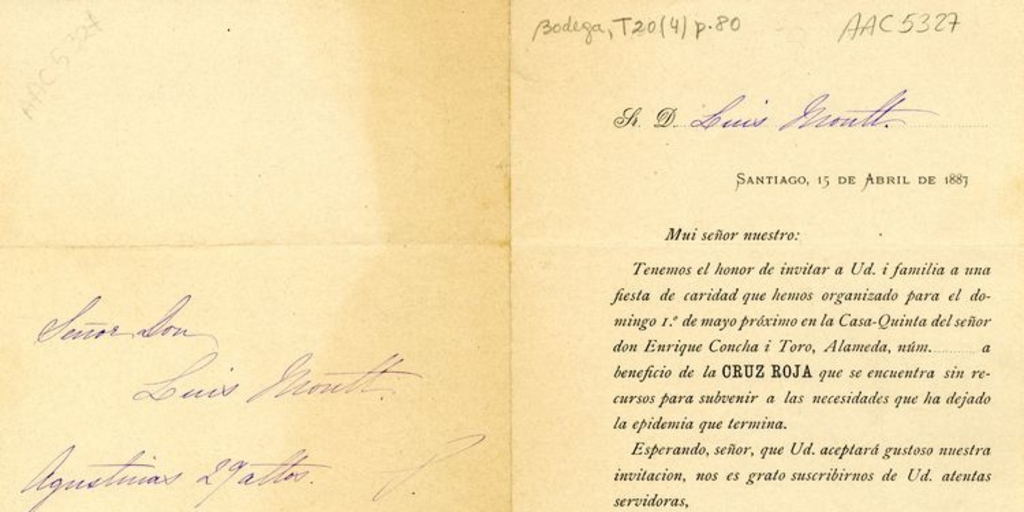 AAC 5327
Señor Don
Luis Montt.
Agustinas 29 altos.
Bodega, T20(4) p.80
AAC 5327
Sr. D. Luis Montt.
SANTIAGO, 15 DE ABRIL DE 1887
Mui señor nuestro:
Tenemos el honor de invitar a Ud. i familia a una
fiesta de caridad que hemos organizado para el do-
mingo 1.º de mayo próximo en la Casa-Quinta del señor
don Enrique Concha i Toro, Alameda, núm.......... a
beneficio de la CRUZ ROJA que se encuentra sin re-
cursos para subvenir a las necesidades que ha dejado
la epidemia que termina.
Esperando, señor, que Ud. aceptará gustoso nuestra
invitacion, nos es grato suscribirnos de Ud. atentas
servidoras,